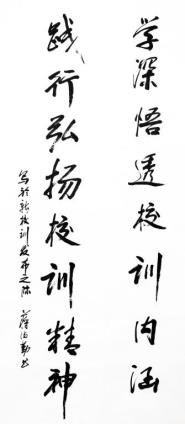 学深悟透校训内涵
践行弘扬校训精神
写于新校训发布之际 薛浩勤书